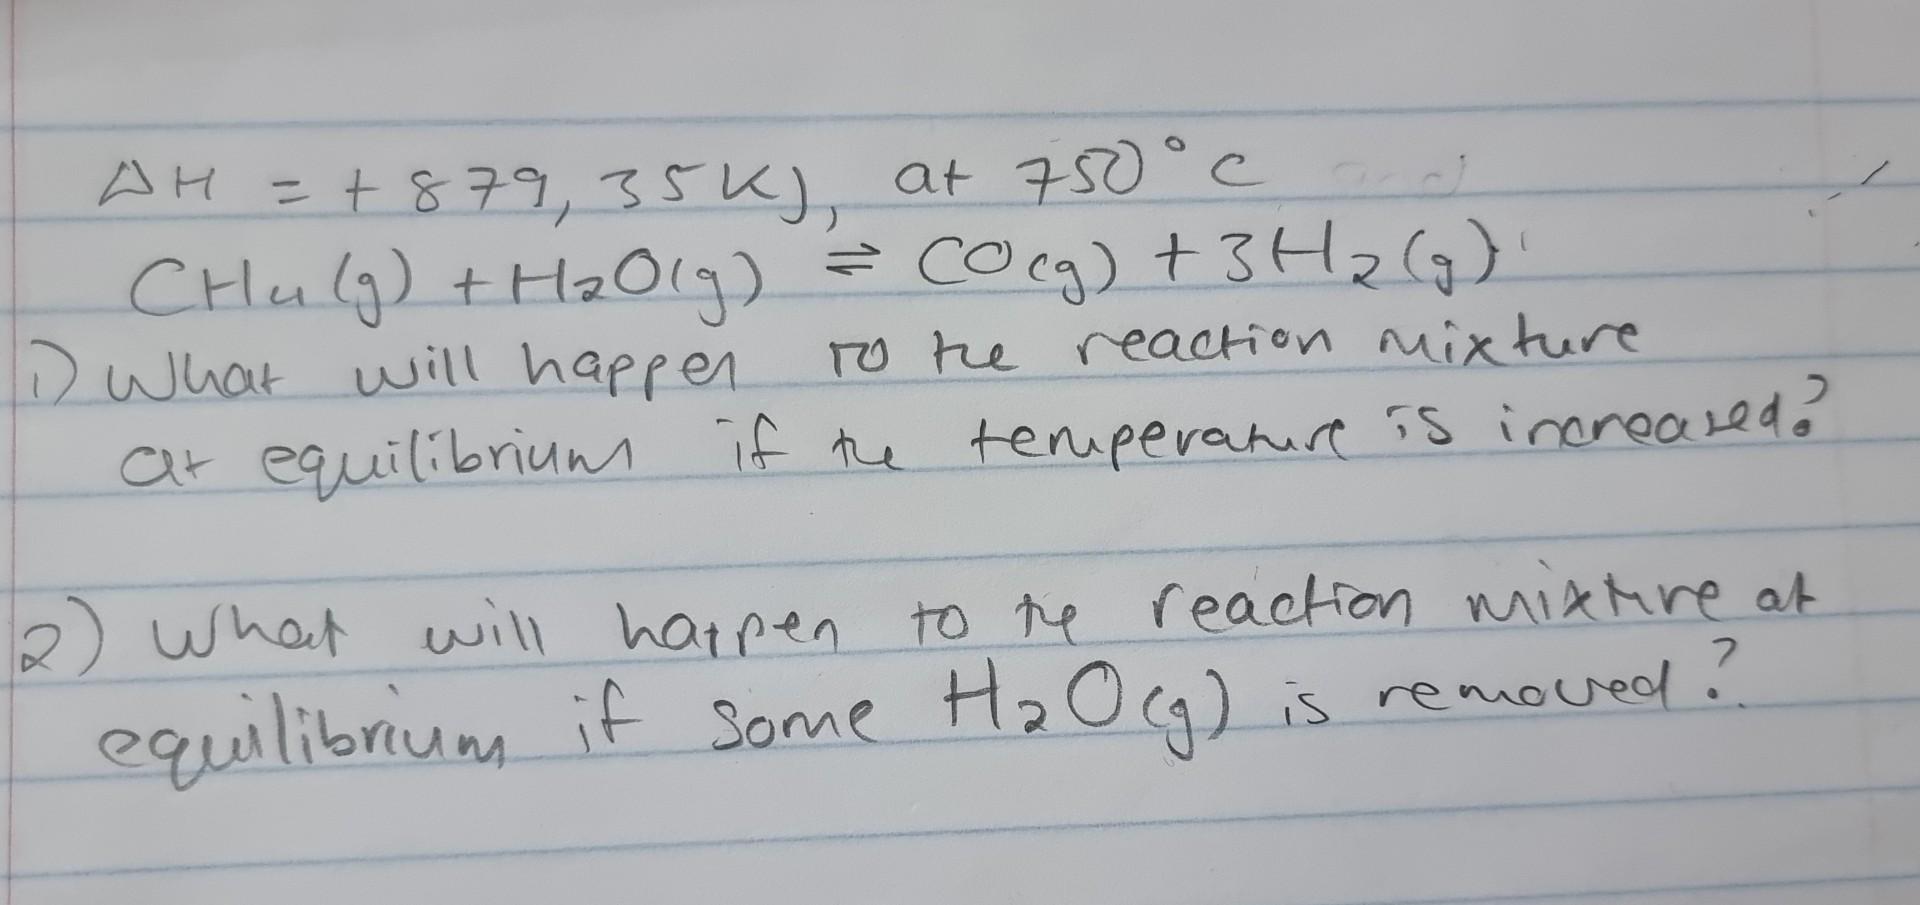 ΔH = + 879, 35 KJ, at 750°C
CH4(g) + H2O(g) ⇌ CO(g) + 3H2(g)
1) What will happen to the reaction mixture
at equilibrium if the temperature is increased?
2) What will happen to the reaction mixture at
equilibrium if some H2O(g) is removed?